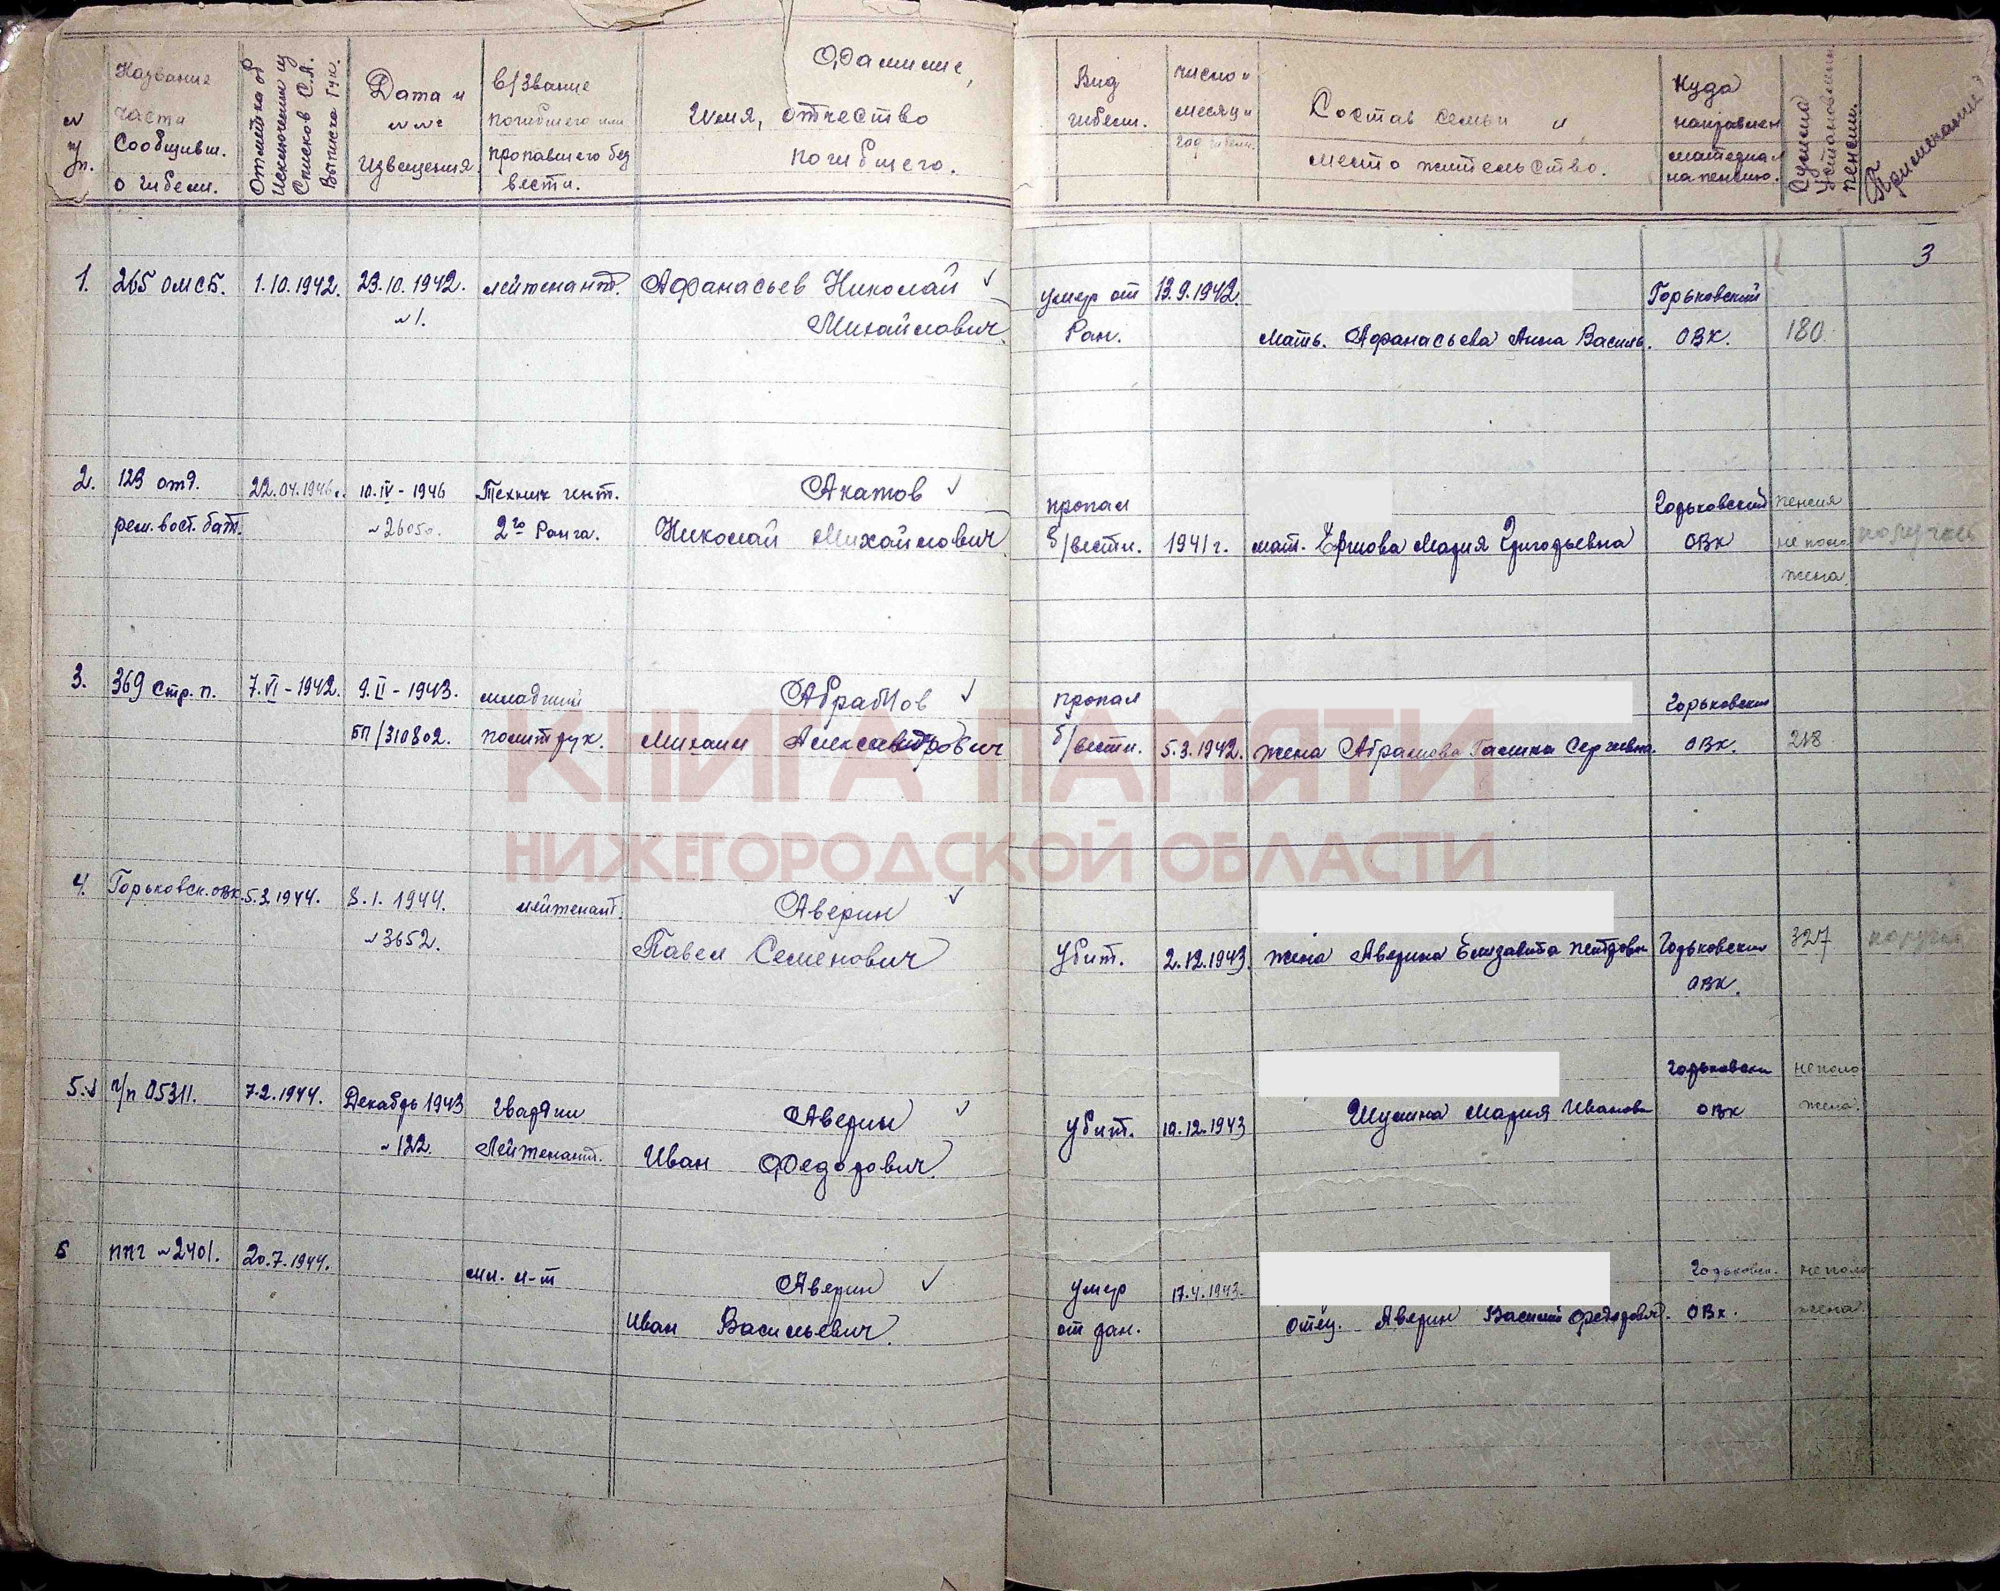 № п/п.
Название части сообщивш. о гибели.
Отметка об исключении из списков С.А. Выписка ГУК.
Дата и №№ извещения
в/звание погибшего или пропавшего без вести.
Фамилие, имя, отчество погибшего.
Вид гибели.
число и месяц и год гибели.
Состав семьи и место жительство.
Куда направлен материал на пенсию.
Сумма установлен. пенсии.
Примечание
3
1. 265 омсб. 1.10.1942. 23.10.1942. лейтенант. Афанасьев Николай ✓
№1. Михайлович
умер от 13.9.1942. Горьковский
Ран. мать. Афанасьева Анна Василь. ОВК. 180
2. 123 отд. 22.04.1946г. 10.IV-1946 Техник инт. Акатов ✓
рем. вост. бат. №26050. 2го Ранга. Николай Михайлович
пропал Горьковский пенсия
б/вести. 1941г. мат. Мария Григорьевна ОВК не поло
жена.
3. 369 стр. п. 7.VI-1942. 9.II-1943. младший Абрамов ✓
БП/310802. политрук. Михаил Александрович
пропал Горьковский
б/вести. 5.3.1942. жена Абрамова Галина Сергеевна. ОВК. 218
КНИГА ПАМЯТИ
НИЖЕГОРОДСКОЙ ОБЛАСТИ
4. Горьковск. ОВК. 5.2.1944. 8.1.1944. лейтенант. Аверин ✓
№3652. Павел Семенович
Убит. 2.12.1943. жена Аверина Елизавета Петровн Горьковский 327
ОВК.
5. п/п 05311. 7.2.1944. Декабрь 1943 гвардии Аверин ✓
№122. Лейтенант. Иван Федорович.
Горьковски неполо
убит. 10.12.1943 Шумина Мария Иванова ОВК жена.
6 ппг №2401. 20.7.1944. мл. л-т Аверин ✓
Иван Васильевич.
умер 17.4.1943. Горьковск. неполо
от ран. отец. Аверин Василий Федорович. ОВК. жена.